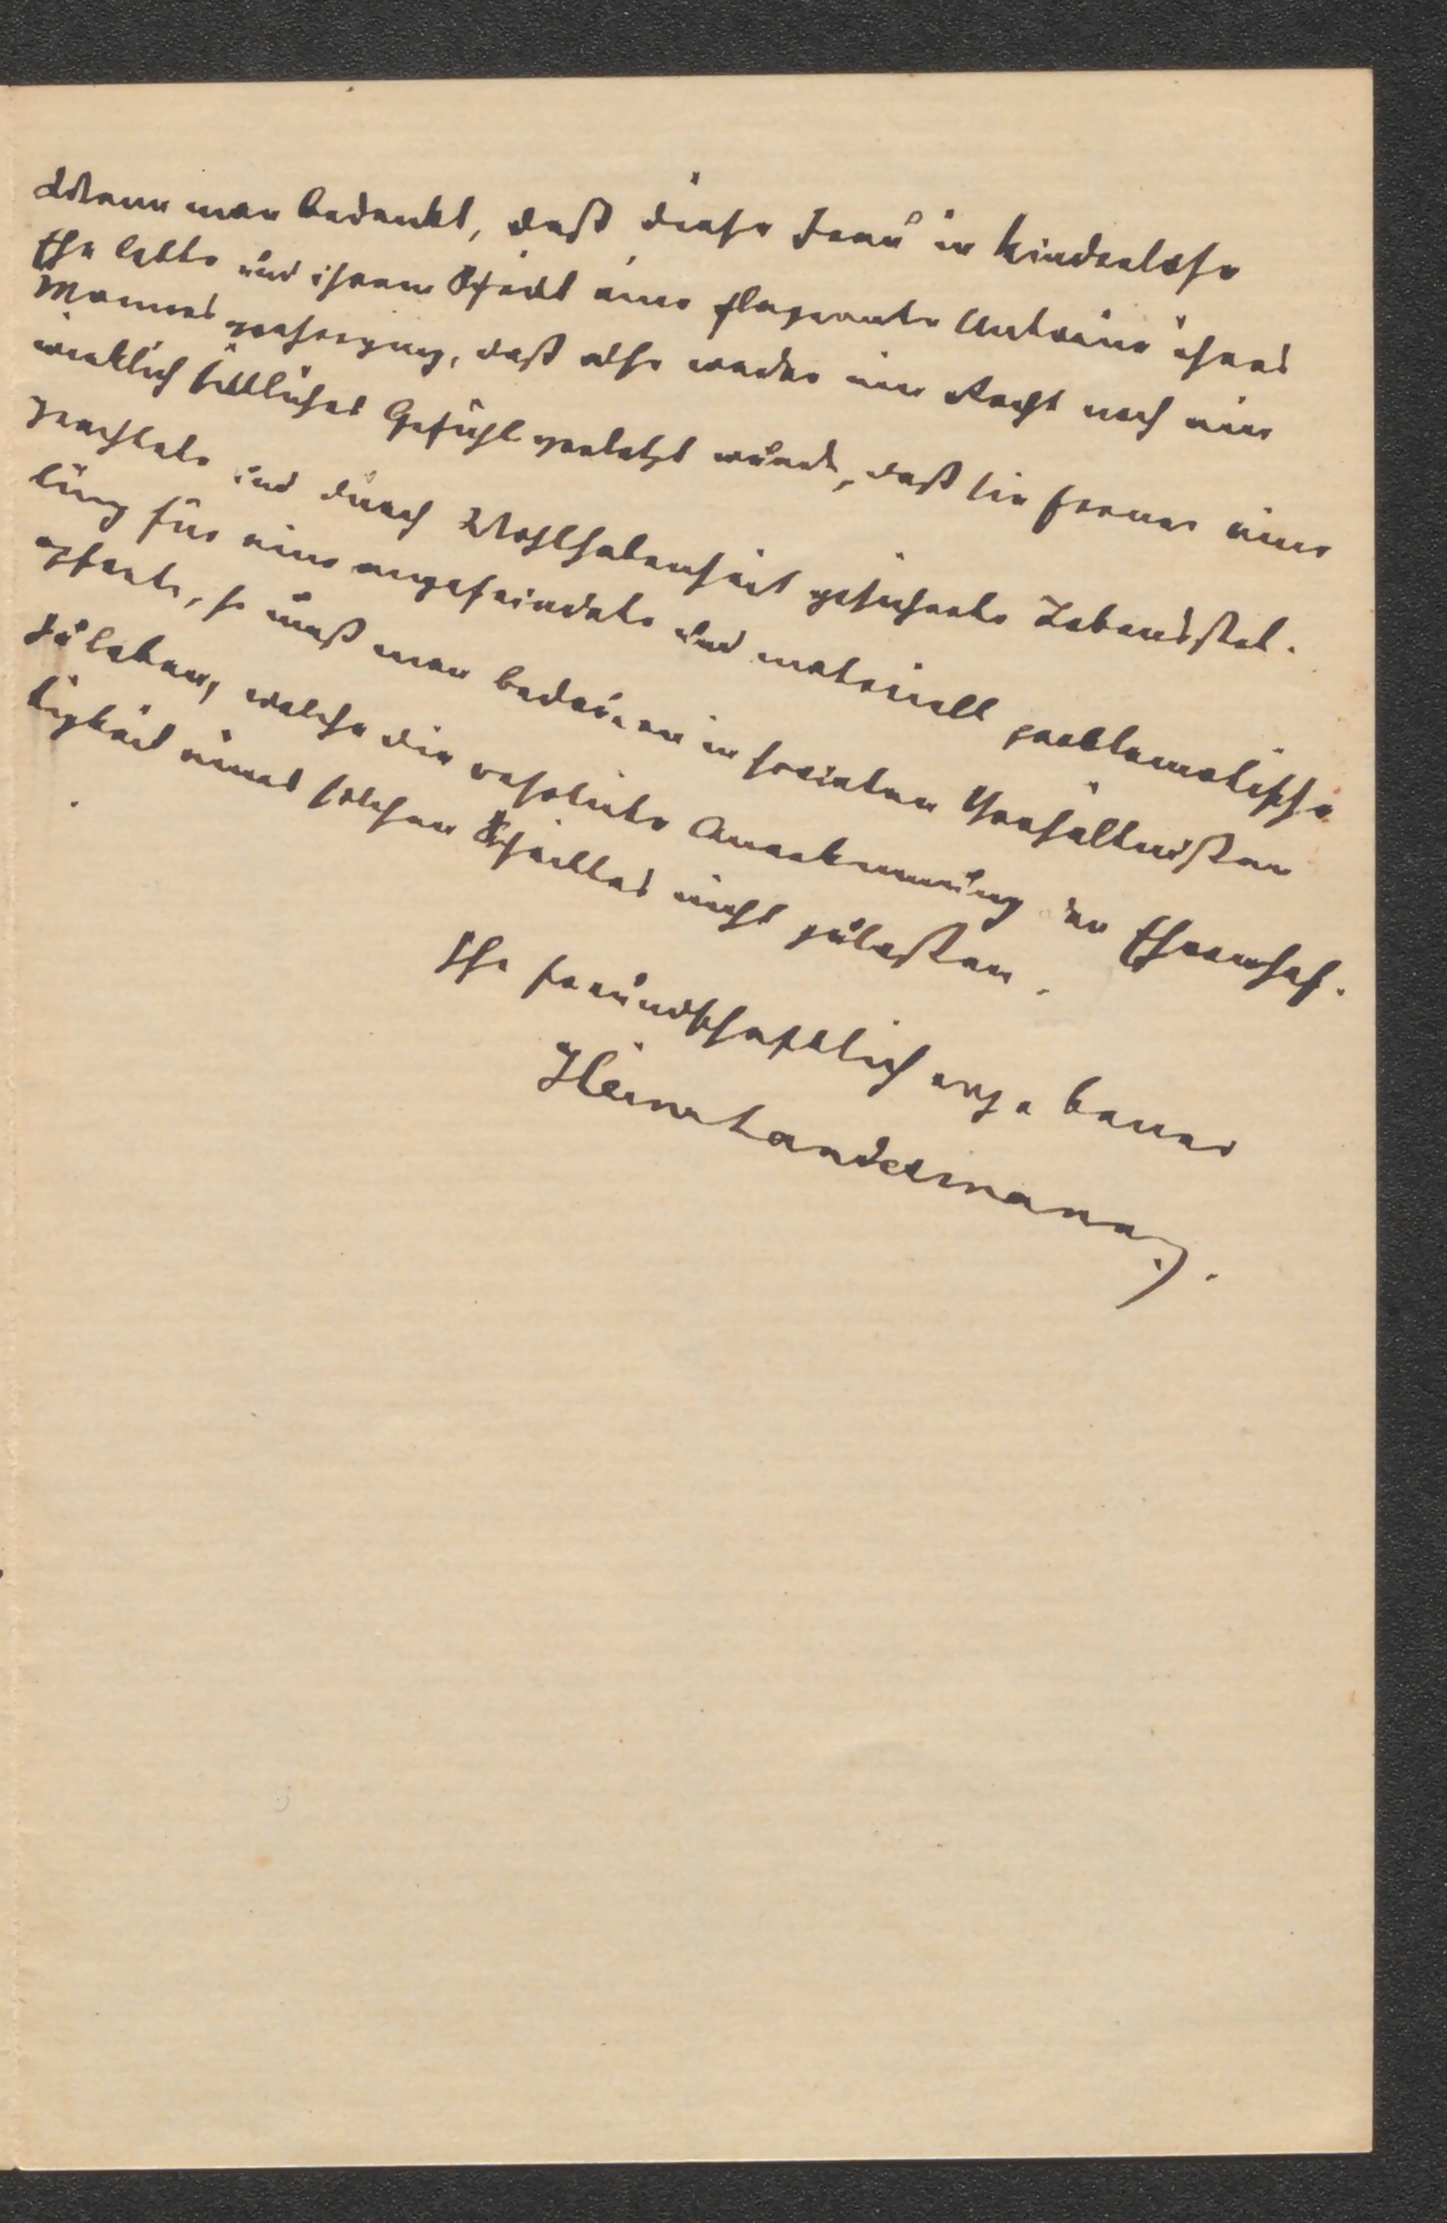 Wenn man bedenkt, daß diese Frau in kinderloser
Ehe lebte und ihrem Schritt eine flagrante Untreue ihres
Mannes vorherging, daß also weder ein Recht noch ein
wirklich sittliches Gefühl verletzt wurde, daß sie ferner eine
geachtete und durch Wohlhabenheit gesicherte Lebensstel-
lung für eine angefeindete und materiell problematische
opferte, so muß man bedauern in socialen Verhältnißen
zu leben, welche die resolute Anerkennung der Ehrenhaf-
tigkeit eines solchen Schrittes nicht zulaßen.
Ihr freundschaftlich ergebener
Heinr Landesmann.